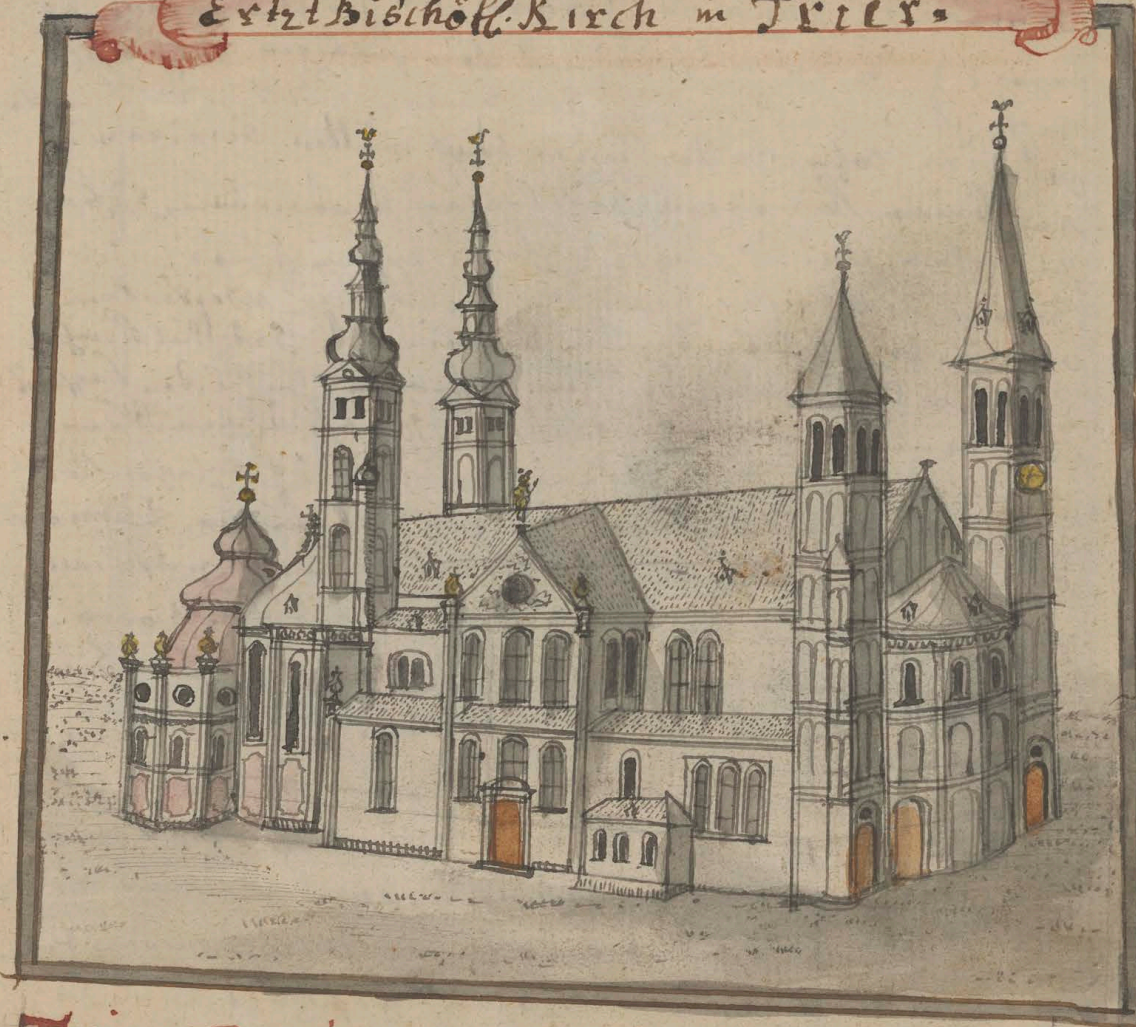 ErtztBischöfl. Kirch in Trier.